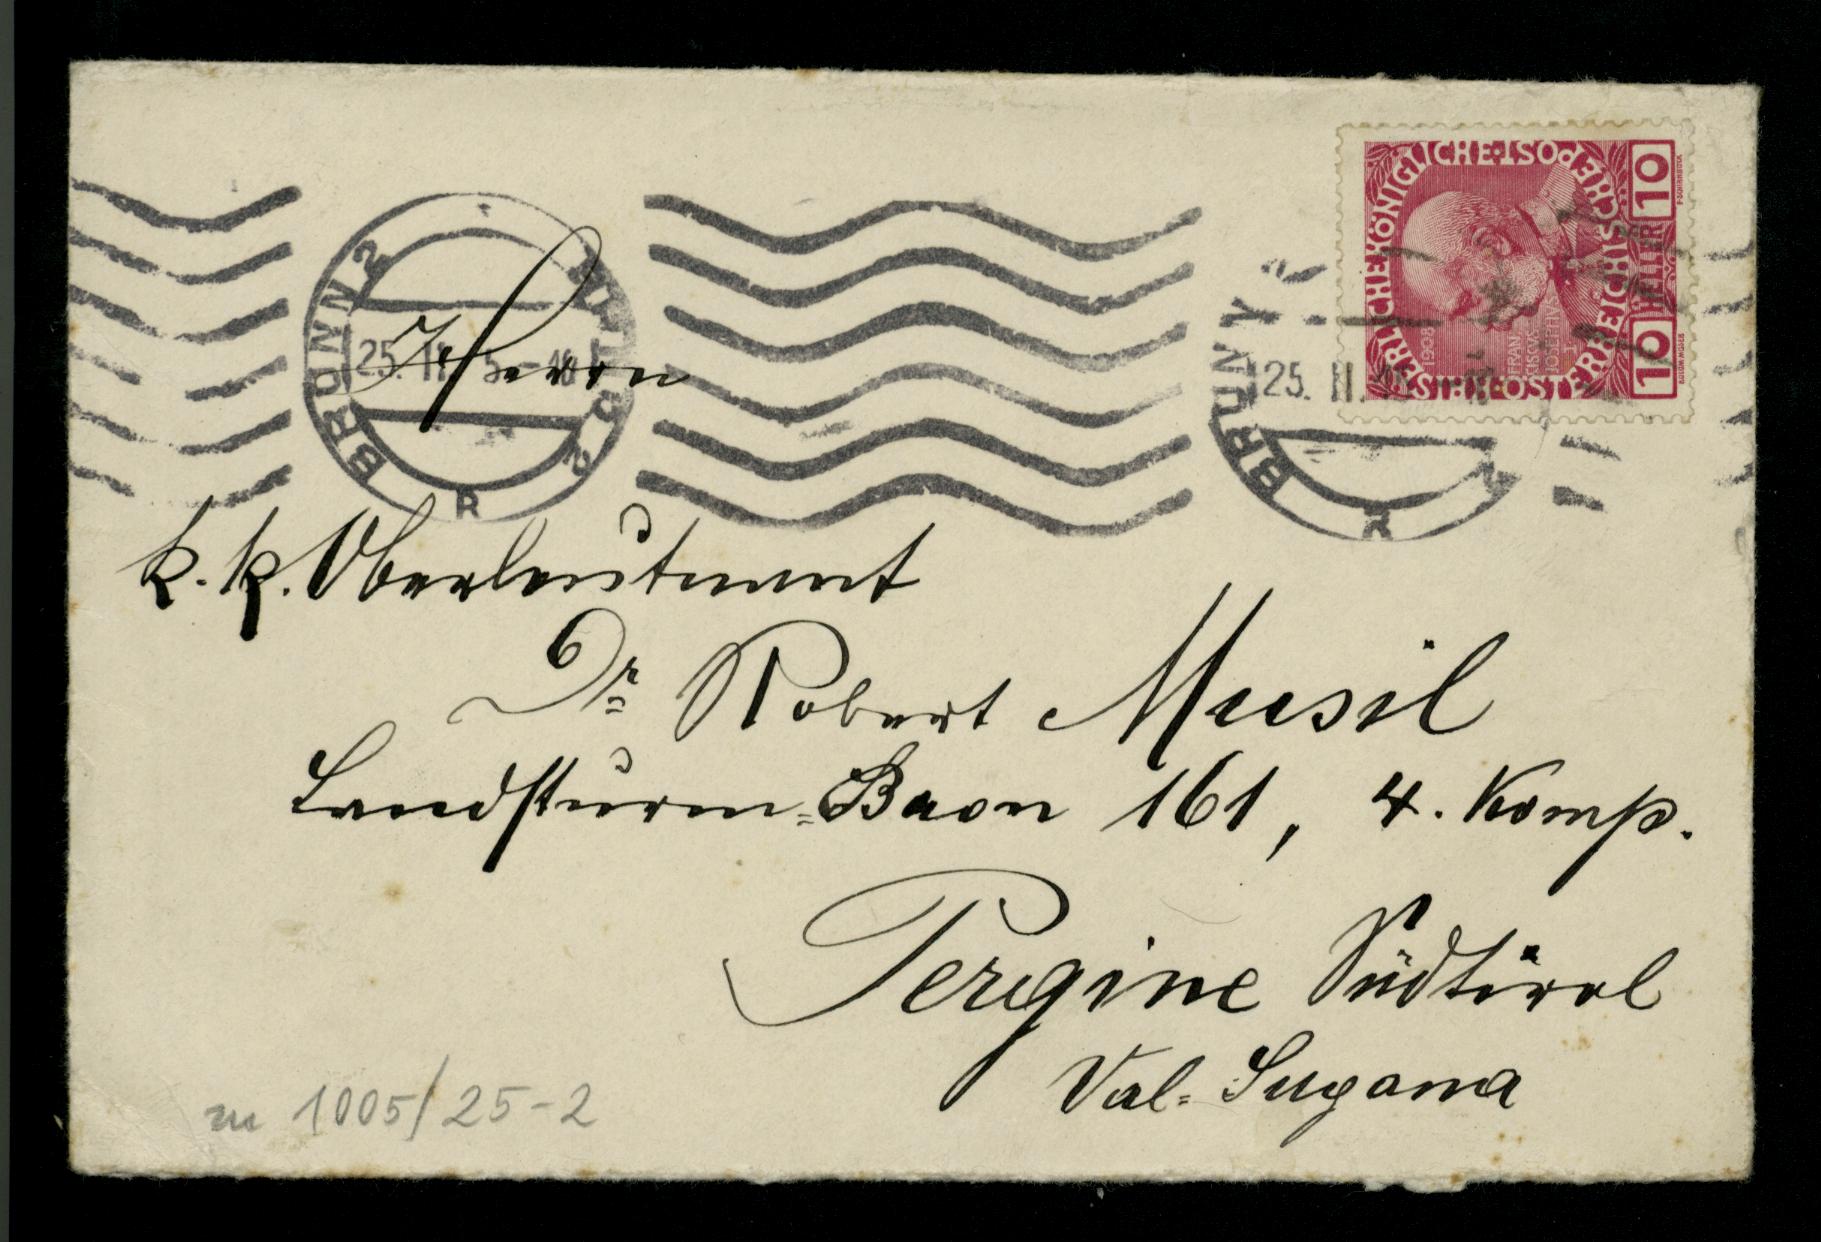 BRÜNN 2
25. II. 15 - 10
R
BRÜNN
25. II.
KAISERLICHE KÖNIGLICHE ÖSTERREICHISCHE POST
10 HELLER 10
1908
FRANCISCVS IOSEPHVS I
Herrn
k. k. Oberleutnant
Dr. Robert Musil
Landsturm-Baon 161, 4. Komp.
Pergine Südtirol
Val-Sugana
zu 1005/25-2